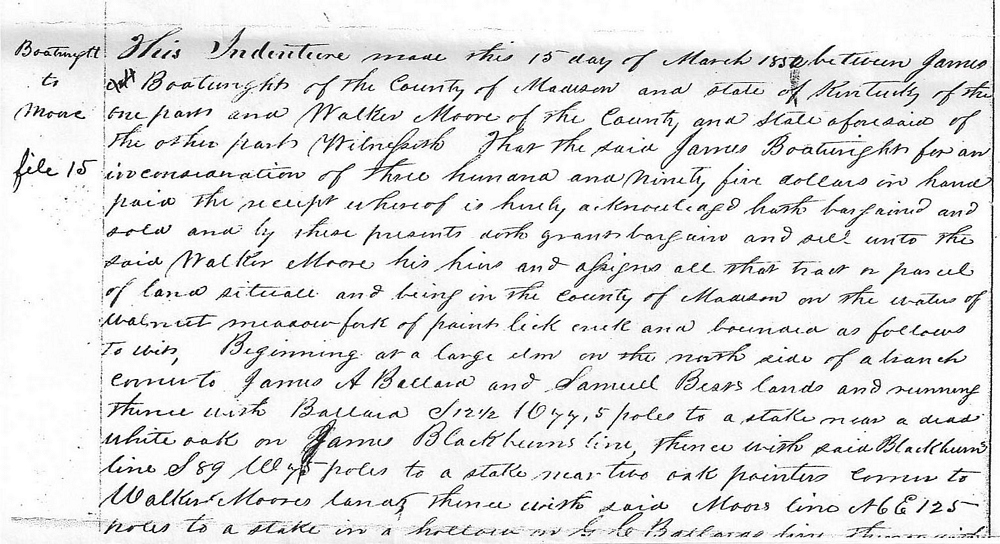 Boatwright
to
Moore
file 15
This Indenture made this 15 day of March 1850 between James
Boatwright of the County of Madison and state of Kentucky of the
one part and Walker Moore of the County and state aforesaid of
the other part Witnesseth That the said James Boatwright for an
in consideration of three hundred and Ninety five dollars in hand
paid the receipt whereof is hereby acknowledged hath bargained and
sold and by these presents doth grant bargain and sell unto the
said Walker Moore his heirs and assigns all that tract or parcel
of land situate and being in the county of Madison on the waters of
walnut meadow fork of paint lick creek and bounded as follows
To wit, Beginning at a large elm on the north side of a branch
corner to James A Ballard and Samuel Bears lands and running
thence with Ballard S 12½ W 77,5 poles to a stake near a dead
white oak on James Blackburns line, thence with said Blackburn
line S 89 W 75 poles to a stake near two oak pointers corner to
Walker Moores land, thence with said Moors line N 6 E 125
poles to a stake in a hollow in Ballards line thence with